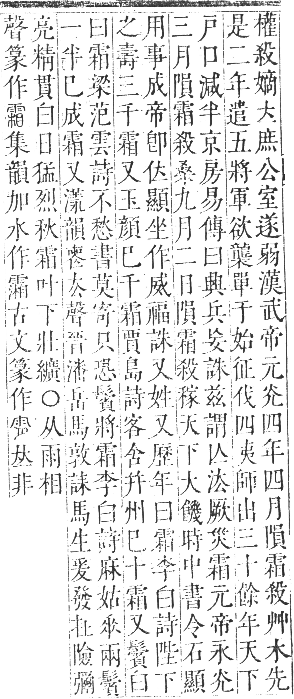 權殺嫡大庶公室遂弱漢武帝元光四年四月隕霜殺艸木先
是二年遣五將軍欲襲單于始征伐四夷師出三十餘年天下
戸口減半京房易傳曰興兵妄誅茲謂亾法厥災霜元帝永光
三月隕霜殺桑九月二日隕霜殺稼天下大饑時中書令石顯
用事成帝卽位顯坐作威福誅又姓又歷年曰霜李白詩陛下
之壽三千霜又玉顏巳千霜賈島詩客舍幷州巳十霜又鬢白
曰霜梁范雲詩不愁書莫寄只恐鬢將霜李白詩麻姑𠂹兩鬢
一半巳成霜又漾韻喪去聲晉潘岳馬敦誄馬生爰發在險彌
亮精貫白日猛烈秋霜叶下壯纊○从雨相
聲篆作霜集韻加水作灀古文篆作丛非